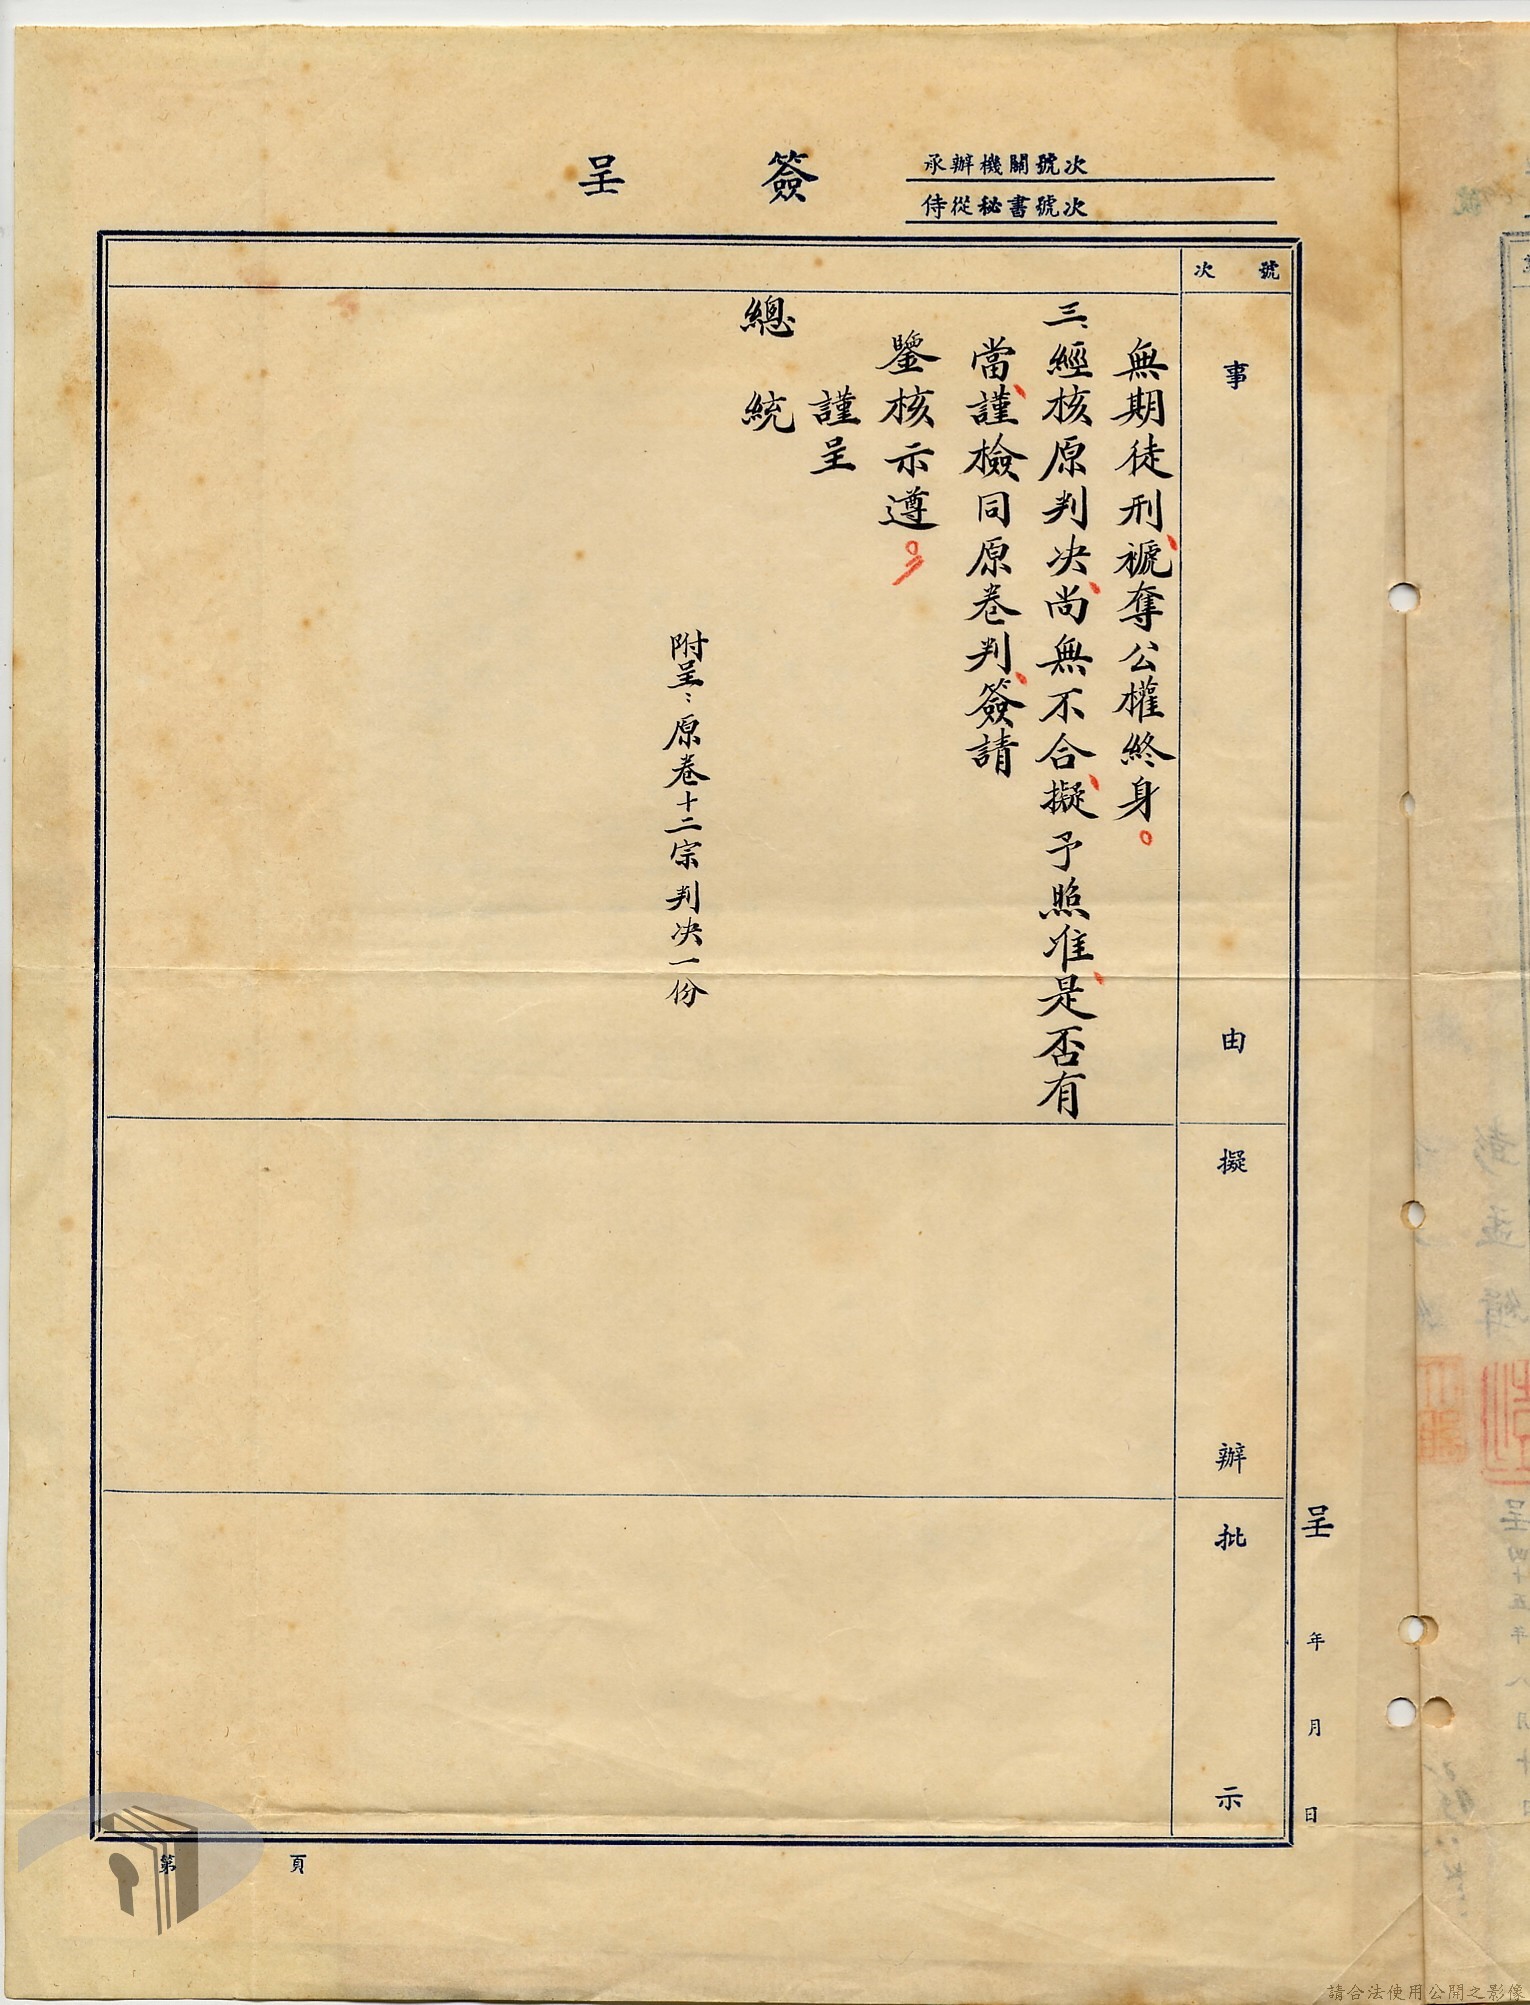 簽呈
承辦機關號次
侍從秘書號次
號次
事由
擬辦
批示
無期徒刑、褫奪公權終身。
三、經核原判決、尚無不合、擬予照准、是否有
當、謹檢同原卷判、簽請
鑒核示遵。
謹呈
總統
附呈：原卷十二宗判決一份
呈 年 月 日
第 頁
彭孟緝
呈四十五年八月十日
請合法使用公開之影像